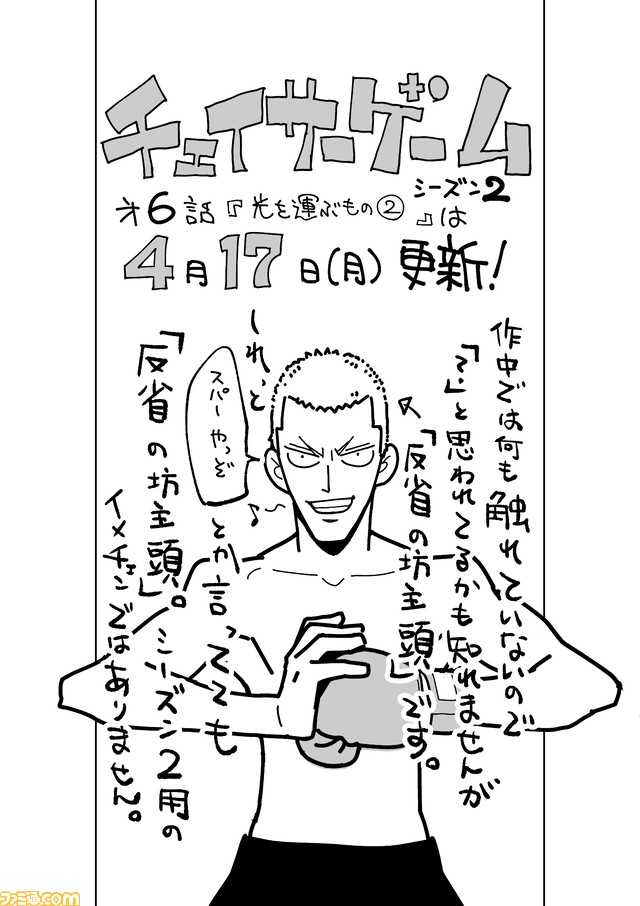 チェイサーゲーム
シーズン2
才6話『光を運ぶもの②』は
4月17日(月)更新!
作中では何も触れていないので
「?」と思われてるかも知れませんが
「反省の坊主頭」です。
しれっと
スパーやっぞ
とか言ってても
「反省の坊主頭」。シーズン2用の
イメチェンではありません。
ファミ通.com